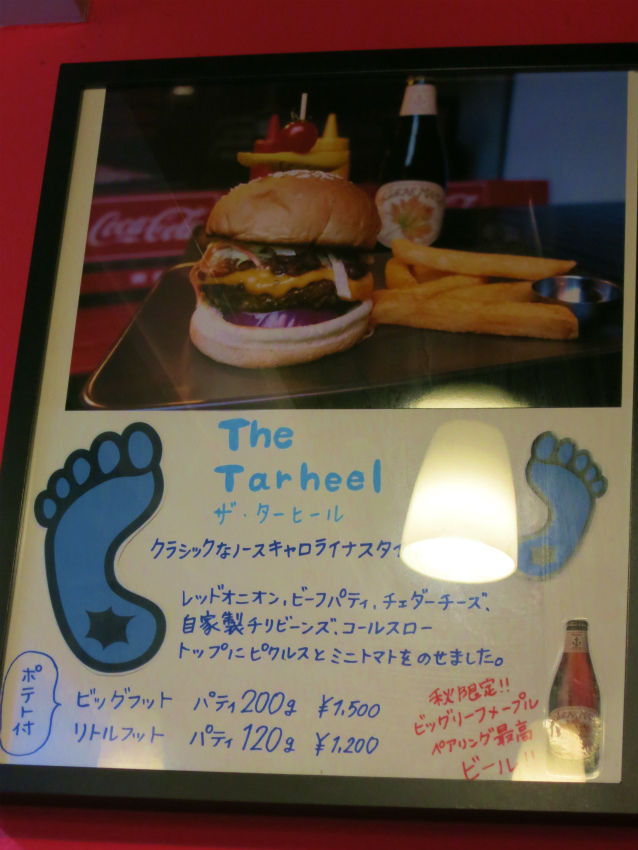 Coca-Cola
The
Tarheel
ザ・ターヒール
クラシックなノースキャロライナスタイ
レッドオニオン、ビーフパティ、チェダーチーズ、
自家製チリビーンズ、コールスロー
トップにピクルスとミニトマトをのせました。
ポテト付
ビッグフット パティ200g ¥1,500
リトルフット パティ120g ¥1,200
秋限定!!
ビッグリーフメープル
ペアリング最高
ビール!!